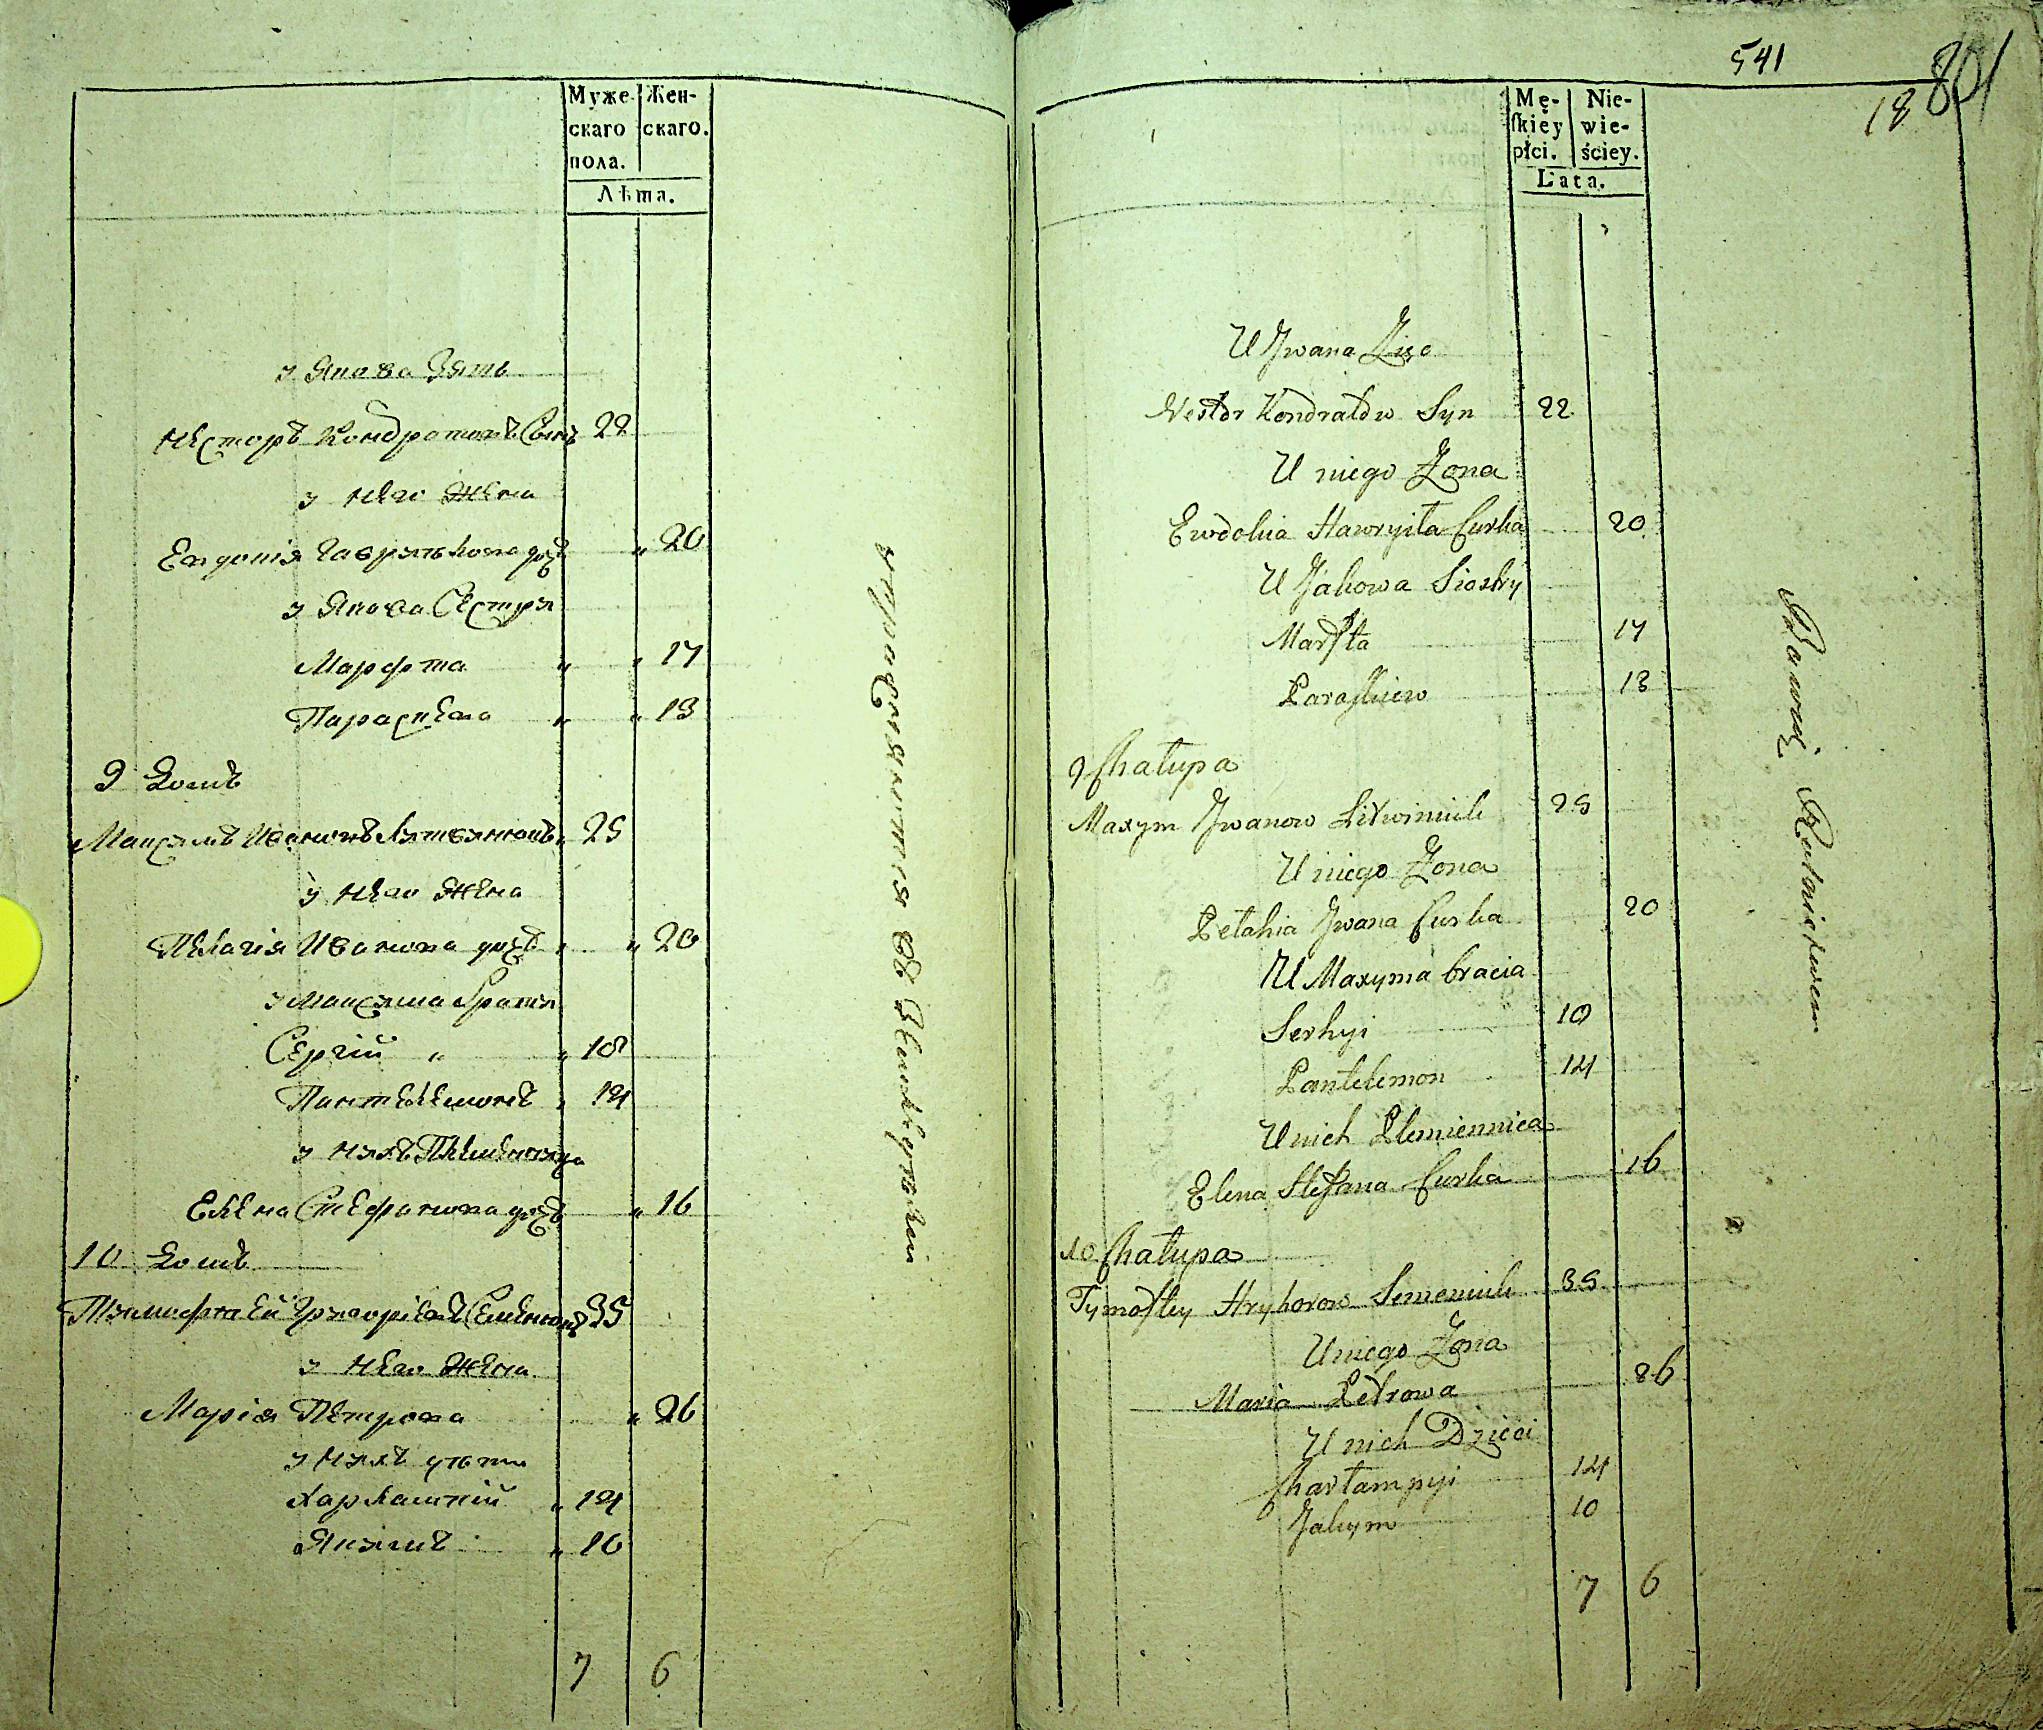 Муже-
скаго
пола.
Жен-
скаго.
Лѣта.
у Якова Зять
Несторъ Кондратовъ Сынъ 22
у него Жена
Евдокія Гаврылькова дочь " 20
у Якова Сестры
Марфта " " 17
Параскева " " 13
9 Домъ
Максымъ Ивановъ Лытвынюкъ " 25
у него Жена
Пелагія Иванова дочь " " 20
у Максыма братья
Сергій " " 18
Пантелемонъ " 14
у ныхъ Племенныца
Елена Стефанова дочь " 16
10 Домъ
Тымофтей Грыгорієвъ Семенюкъ 35
у него Жена
Марія Петрова " 26
у ныхъ дѣти
Харлампій " 14
Якымъ " 10
7 6
541
801
18
Mę-
skiey
płci.
Nie-
wie-
ściey.
Lata.
U Jwana Zięc
Nestor Kondratow Syn 22
U niego Zona
Ewdokia Hawryiła Curka 20
U Jakowa Siostry
Marfta 17
Paraskiew 13
9 Chałupa
Maxym Jwanow Litwiniuk 25
U niego Zona
Pełahia Jwana Curka 20
U Maxyma bracia
Serhyi 10
Pantelemon 14
U nich Plemiennica
Elena Stefana Curka 16
10 Chałupa
Tymoftey Hryhorow Semeniuk 35
U niego Zona
Maria Petrowa 26
U nich Dzieci
Charłampyi 14
Jakym 10
7 6